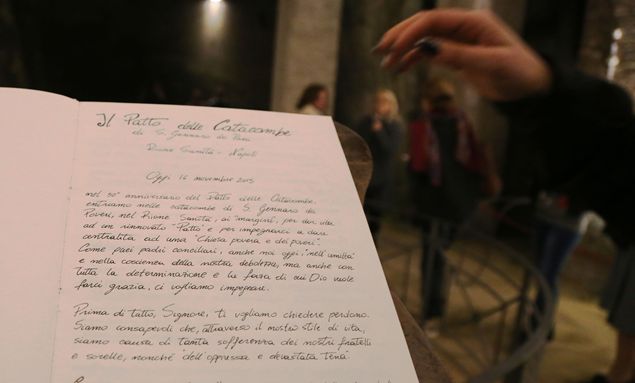 Il Patto delle Catacombe
di S. Gennaro dei Poveri
Rione Sanità - Napoli
Oggi 16 novembre 2015
nel 50° anniversario del Patto delle Catacombe,
entriamo nelle catacombe di S. Gennaro dei
Poveri, nel Rione Sanità, ai "margini", per dar vita
ad un rinnovato "Patto" e per impegnarci a dare
centralità ad una "Chiesa povera e dei poveri".
Come quei padri conciliari, anche noi oggi, "nell'umiltà
e nella coscienza della nostra debolezza, ma anche con
tutta la determinazione e la forza di cui Dio vuole
farci grazia, ci vogliamo impegnare.
Prima di tutto, Signore, ti vogliamo chiedere perdono.
Siamo consapevoli che, attraverso il nostro stile di vita,
siamo causa di tanta sofferenza dei nostri fratelli
e sorelle, nonché "dell'oppressa e devastata terra".